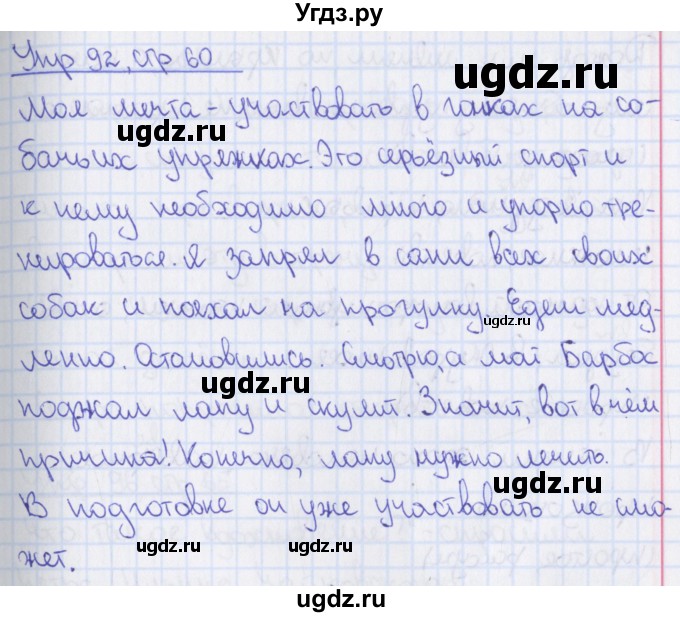 Угдз.ру
Упр 92, стр 60
ugdz.ru
Моя мечта - участвовать в гонках на со-
ugdz.ru
бачьих упряжках. Это серьёзный спорт и
к нему необходимо много и упорно тре-
нироваться. Я запрял в сани всех своих
собак и поехал на прогулку. Едем мед-
ugdz.ru
ленно. Остановились. Смотрю, а мой Барбос
ugdz.ru
поджал лапу и скулит. Значит, вот в чём
причина! Конечно, лапу нужно лечить.
В подготовке он уже участвовать не смо-
жет.
ugdz.ru ugdz.ru
ugdz.ru